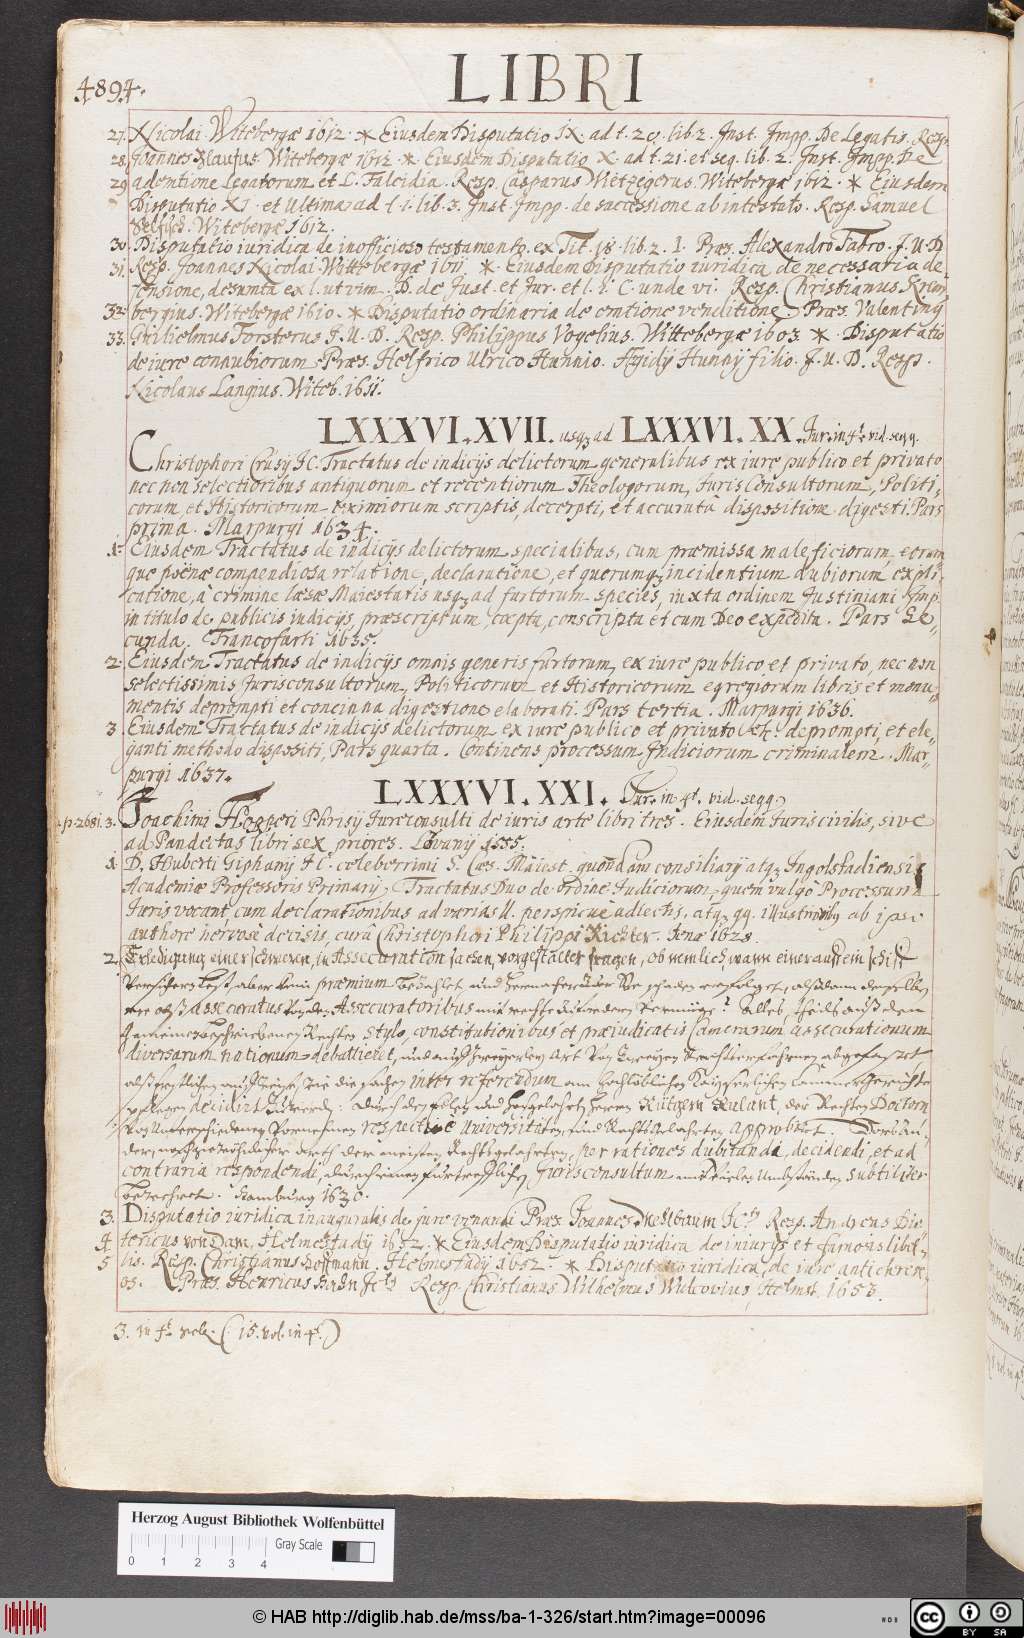 4894.
LIBRI
27. Nicolai. Witebergæ 1612. * Eiusdem Disputatio IX. ad t. 20. lib. 2. Inst. Impp. De Legatis. Resp.
28. Joannes Witebergæ 1612. * Eiusdem Disputatio X. ad t. 21. et seq. lib. 2. Inst. Impp. De
29 ademtione Legatorum et L. Falcidia. Resp. Casparus Metzgerus. Witebergæ 1612. * Eiusdem
Disputatio XI. et Ultima ad t. 1. lib. 3. Inst. Impp. de successione ab intestato. Resp. Samuel
Selfisch. Witebergæ 1612.
30. Disputatio iuridica de inofficioso testamento ex Tit. 18. lib. 2. I. Præs. Alexandro Fabro. J. U. D
31. Resp. Joannes Nicolai. Wittebergæ 1611. * Eiusdem Disputatio iuridica de necessaria de-
fensione, desumta ex l. ut vim. D. de Just. et Jur. et l. 1. C. unde vi. Resp. Christianus
32. bergius. Witebergæ 1610. * Disputatio ordinaria de emtione venditione. Præs. Valentinus
33. Guilielmus Forsterus J. U. D. Resp. Philippus Vogelius. Wittebergæ 1603. * Disputatio
de iure connubiorum Præs. Helfrico Ulrico Hunnio. Ægidij Hunnij filio. J. U. D. Resp.
Nicolaus Langius. Witeb. 1611.
LXXXVI. XVII. usqȝ ad LXXXVI. XX. Jur. in 4t. vid. seqq.
Christophori Crusij JC. Tractatus de indicijs delictorum generalibus ex iure publico et privato
nec non selectioribus antiquorum et recentiorum Theologorum, JurisConsultorum, Politi-
corum et Historicorum eximiorum scriptis, decerpti, et accurata dispositione digesti. Pars
prima. Marpurgi 1634.
1. Eiusdem Tractatus de indicijs delictorum specialibus, cum præmissa maleficiorum, eorum
que poenæ compendiosa relatione, declaratione, et quorumqȝ incidentium dubiorum expli-
catione, à crimine læsæ Maiestatis usqȝ ad furtorum species, iuxta ordinem Justiniani Imp.
in titulo de publicis iudicijs, præscriptum, cœpta, conscripta et cum Deo expedita. Pars Se-
cunda. Francofurti 1635.
2. Eiusdem Tractatus de indicijs omnis generis furtorum, ex iure publico et privato, nec non
selectissimis Jurisconsultorum, Politicorum et Historicorum egregiorum libris et monu-
mentis deprompti et concinna digestione elaborati. Pars tertia. Marpurgi 1636.
3 Eiusdem Tractatus de indicijs delictorum ex iure publico et privato &c. deprompti, et ele-
ganti methodo dispositi, Pars quarta. Continens processum Judiciorum criminalem. Mar-
purgi 1637.
LXXXVI. XXI. Jur. in 4t. vid. seqq.
p. 2681. 3. Joachimi Hopperi Phrisij Jureconsulti de iuris arte libri tres. Eiusdem Juris civilis, sive
ad Pandectas libri sex priores. Lovanij 1555.
1 D. Huberti Giphanij JC. celeberrimi S. Cæs. Maiest. quondam consiliarij atqȝ Ingolstadiensis
Academiæ Professoris Primarij, Tractatus Duo de ordine Judiciorum, quem vulgò Processum
Juris vocant cum declarationibus ad varias ll. perspicuè adlectis, atqȝ qq. illustribus ab ipso
authore nervosè decisis, curâ Christophori Philippi Richter. Jenæ 1628.
2. Erledigung einer schweren, in Assecuration sachen, vorgestalter fragen, ob nemlich, wann einer auff ein schiff
versichern lest, aber kein præmium bezahlet und hernacher der schaden erfolget, alßdann derselbe
assecuratus von den Assecuratoribus mit rechte zufordern vermüge? Alles, theils auß dem
gemeinen beschriebenen Rechten stylo, constitutionibus et præiudicatis Camerarum assecurationum
diversarum nationum debattiert, und auch zweyerley Art von zweyen Rechtserfahrnen abgefasset
alß weise wie die sachen inter referendum am hochlöblichen Kayserlichen Cammer Gerichte
pflegen decidirt zuwerden: durch den Edlen und hochgelahrten Herrn Rütgern Rulant, der Rechten Doctorn
von unterschiedenen vornehmen respectivè Universiteten, und Rechtsgelahrten approbiret. Worbey
der meisten Rechtsgelehrten, per rationes dubitandi, decidendi, et ad
contraria respondendi, durch einen fürtrefflichen Jurisconsultum mit vielen umbständen subtiliter
berechnet. Hamburg 1630.
3. Disputatio iuridica inauguralis de jure venandi Præs. Joannes Dieselbaum JCtus Resp. Andreas Die-
4 tericus von Dam. Helmestadij 1652. * Eiusdem Disputatio iuridica de iniurijs et famosis libel-
5 lis. Resp. Christianus Hoffmann. Helmestadij 1652. * Disputatio iuridica de iure antichrese-
os. Præs. Henricus Hahn JCtus Resp. Christianus Wilhelmus Wulcovius, Helmst. 1653.
3. in 4t. (15. vol. in 4t.)
Herzog August Bibliothek Wolfenbüttel
Gray Scale
0 1 2 3 4
© HAB http://diglib.hab.de/mss/ba-1-326/start.htm?image=00096
WDB
cc BY SA